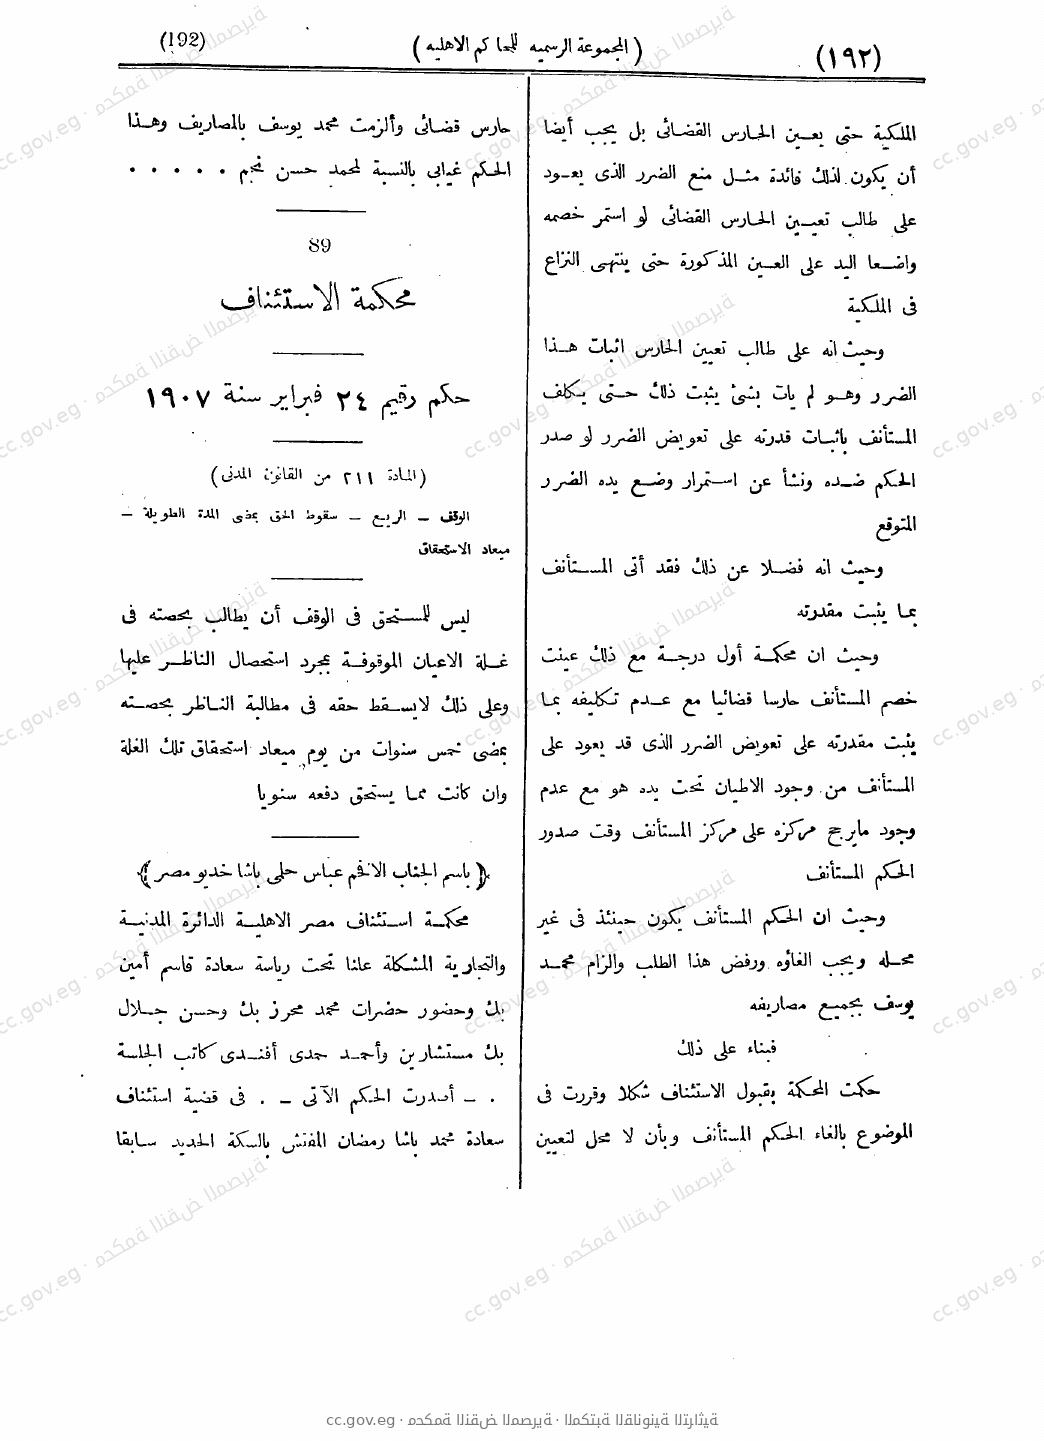 (192)
(المجموعة الرسميه للمحاكم الاهليه)
(١٩٢)
الملكية حتى يعين الحارس القضائى بل يجب أيضا
أن يكون لذلك فائدة مثل منع الضرر الذى يعود
على طالب تعيين الحارس القضائى لو استمر خصمه
واضعا اليد على العين المذكورة حتى ينتهى النزاع
فى الملكية
وحيث انه على طالب تعيين الحارس اثبات هذا
الضرر وهو لم يات بشئ يثبت ذلك حتى يكلف
المستأنف باثبات قدرته على تعويض الضرر لو صدر
الحكم ضده ونشأ عن استمرار وضع يده الضرر
المتوقع
وحيث انه فضلا عن ذلك فقد أتى المستأنف
بما يثبت مقدرته
وحيث ان محكمة أول درجة مع ذلك عينت
خصم المستأنف حارسا قضائيا مع عدم تكليفه بما
يثبت مقدرته على تعويض الضرر الذى قد يعود على
المستأنف من وجود الاطيان تحت يده هو مع عدم
وجود مايرجح مركزه على مركز المستأنف وقت صدور
الحكم المستأنف
وحيث ان الحكم المستأنف يكون حينئذ فى غير
محله ويجب الغاؤه ورفض هذا الطلب والزام محمد
يوسف بجميع مصاريفه
فبناء على ذلك
حكمت المحكمة بقبول الاستئناف شكلا وقررت فى
الموضوع بالغاء الحكم المستأنف وبأن لا محل لتعيين
حارس قضائى وألزمت محمد يوسف بالمصاريف وهذا
الحكم غيابى بالنسبة لمحمد حسن نجم . . . . .
89
محكمة الاستئناف
حكم رقيم ٢٤ فبراير سنة ١٩٠٧
(المادة ٢١١ من القانون المدنى)
الوقف – الريع – سقوط الحق بمضى المدة الطويلة –
ميعاد الاستحقاق
ليس للمستحق فى الوقف أن يطالب بحصته فى
غلة الاعيان الموقوفة بمجرد استحصال الناظر عليها
وعلى ذلك لايسقط حقه فى مطالبة الناظر بحصته
بمضى خمس سنوات من يوم ميعاد استحقاق تلك الغلة
وان كانت مما يستحق دفعه سنويا
﴿باسم الجناب الافخم عباس حلمى باشا خديو مصر﴾
محكمة استئناف مصر الاهلية الدائرة المدنية
والتجارية المشكلة علنا تحت رياسة سعادة قاسم أمين
بك وحضور حضرات محمد محرز بك وحسن جلال
بك مستشارين وأحمد حمدى أفندى كاتب الجلسة
. – أصدرت الحكم الآتى – . فى قضية استئناف
سعادة محمد باشا رمضان المفتش بالسكة الحديد سابقا
cc.gov.eg · محكمة النقض المصرية · المكتبة القانونية التراثية